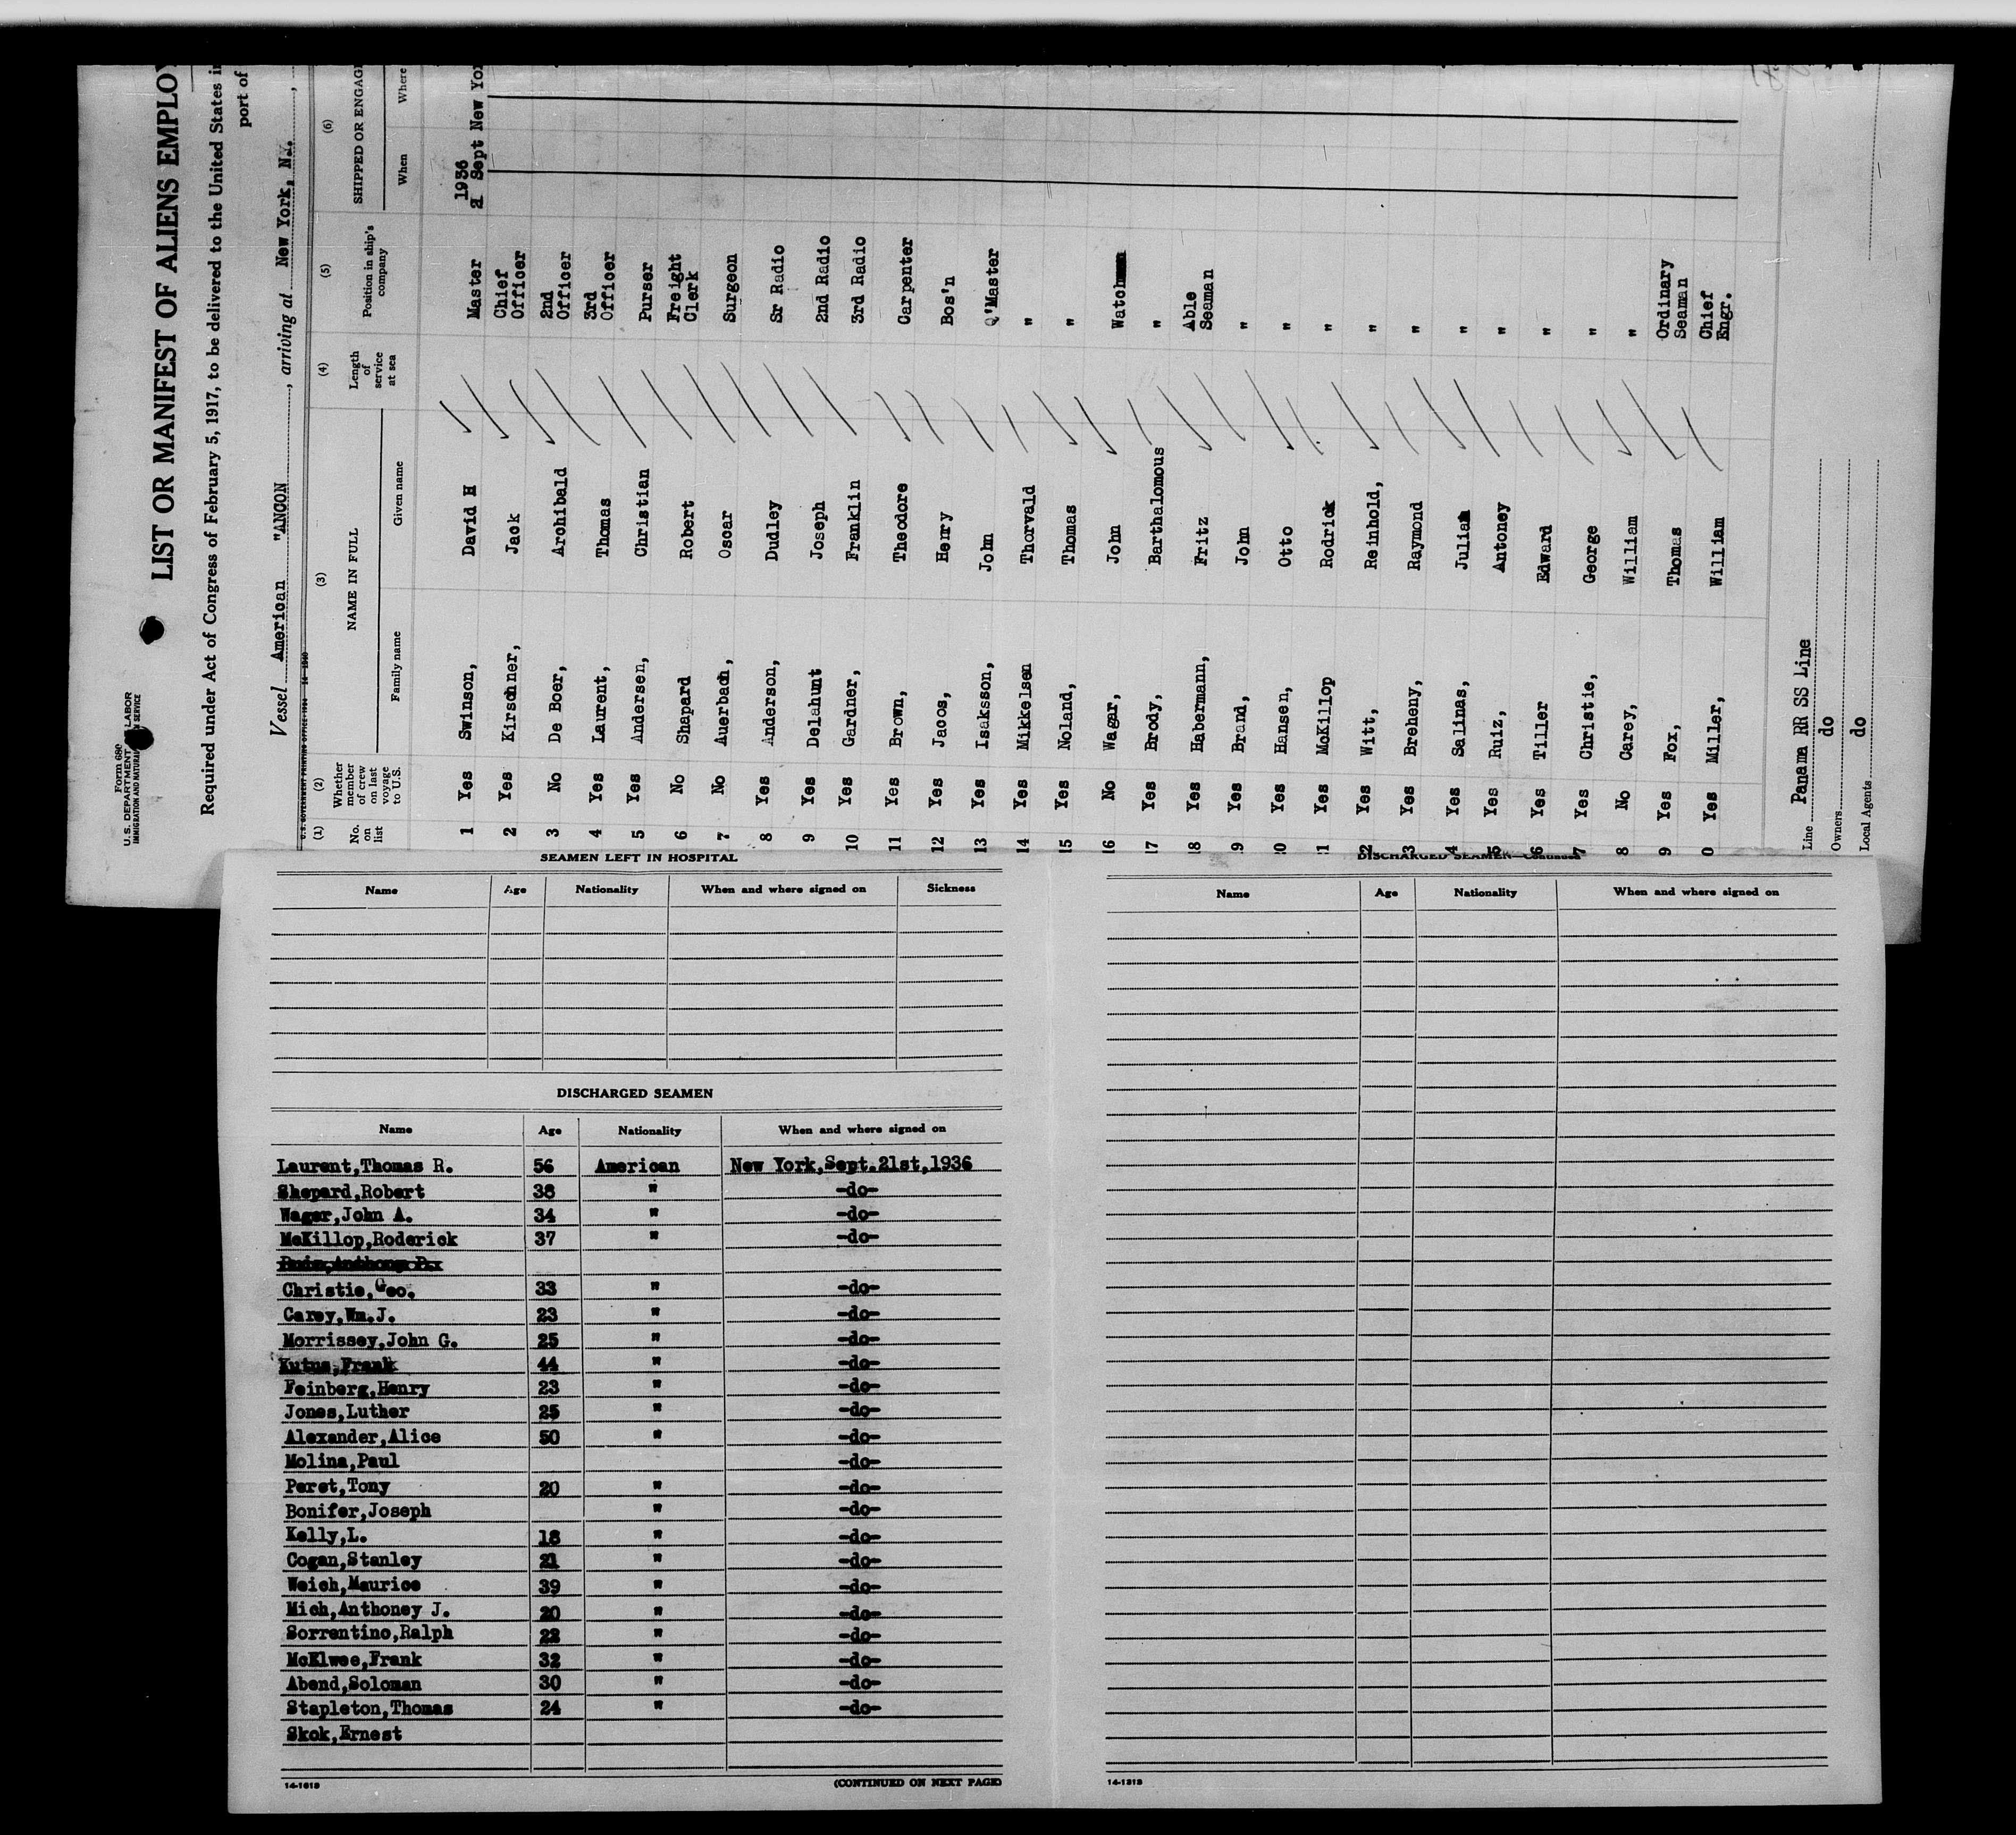 Form 680
U.S. DEPARTMENT LABOR
IMMIGRATION AND SERVICE
LIST OR MANIFEST OF ALIENS EMPLOY
Required under Act of Congress of February 5, 1917, to be delivered to the United States
port of
Vessel American "ANCON , arriving at New York, N.Y. ,
(1) (2) (3) (4) (5) (6)
No. on list Whether member of crew on last voyage to U.S. NAME IN FULL Length of service at sea Position in ship's company SHIPPED OR ENGAG
Family name Given name When Where
1936
1 Yes Swinson, David H Master Sept New Yor
2 Yes Kirschner, Jack Chief Officer
3 No De Boer, Archibald 2nd Officer
4 Yes Laurent, Thomas 3rd Officer
5 Yes Andersen, Christian Purser
6 No Shapard Robert Freight Clerk
7 No Auerbach, Oscar Surgeon
8 Yes Anderson, Dudley Sr Radio
9 Yes Delahunt Joseph 2nd Radio
10 Yes Gardner, Franklin 3rd Radio
11 Yes Brown, Theodore Carpenter
12 Yes Jacos, Henry Bos'n
13 Yes Isaksson, John Q'Master
14 Yes Mikkelsen Thorvald "
15 Yes Noland, Thomas "
16 No Wagar, John
17 Yes Brody, Barthalomous "
18 Yes Habermann, Fritz Able Seaman
9 Yes Brand, John "
0 Yes Hansen, Otto "
1 Yes McKillop Rodrick "
2 Yes Witt, Reinhold, "
3 Yes Breheny, Raymond "
4 Yes Salinas, Julian "
5 Yes Ruiz, Antoney "
6 Yes Tiller Edward "
7 Yes Christie, George "
8 No Carey, William "
9 Yes Fox, Thomas Ordinary Seaman
0 Yes Miller, William Chief Engr.
Line Panama RR SS Line
Owners do
Local Agents do
SEAMEN LEFT IN HOSPITAL
Name Age Nationality When and where signed on Sickness
DISCHARGED SEAMEN
Name Age Nationality When and where signed on
Laurent,Thomas R. 56 American New York,Sept.21st,1936
Shepard,Robert 38 " -do-
Wager,John A. 34 " -do-
McKillop,Roderick 37 " -do-
Christie,Geo. 33 " -do-
Carey,Wm.J. 23 " -do-
Morrissey,John G. 25 " -do-
Kutus,Frank 44 " -do-
Feinberg,Henry 23 " -do-
Jones,Luther 25 " -do-
Alexander,Alice 50 " -do-
Molina,Paul -do-
Peret,Tony 20 " -do-
Bonifer,Joseph " -do-
Kelly,L. 18 " -do-
Cogan,Stanley 21 " -do-
Weich,Maurice 39 " -do-
Mich,Anthoney J. 20 " -do-
Sorrentino,Ralph 22 " -do-
McElwee,Frank 32 " -do-
Abend,Soloman 30 " -do-
Stapleton,Thomas 24 " -do-
Skok,Ernest
14-1313 (CONTINUED ON NEXT PAGE)
DISCHARGED SEAMEN—Continued
Name Age Nationality When and where signed on
14-1313